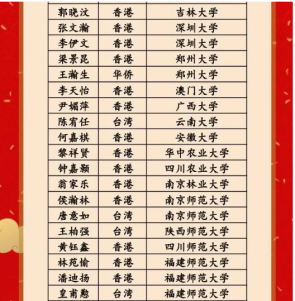 郭晓汶 香港 吉林大学
张文瀚 香港 深圳大学
李伊文 香港 深圳大学
梁景昆 香港 郑州大学
王瀚生 华侨 郑州大学
李天怡 香港 澳门大学
尹媚萍 香港 广西大学
陈宥任 台湾 云南大学
何嘉棋 香港 安徽大学
黎祥贤 香港 华中农业大学
钟嘉颖 香港 四川农业大学
翁家乐 香港 南京林业大学
侯瀚林 香港 南京师范大学
唐意如 台湾 南京师范大学
王柏强 台湾 陕西师范大学
黄钰鑫 香港 四川师范大学
林苑愉 香港 福建师范大学
潘迪扬 香港 福建师范大学
皇甫懃 台湾 福建师范大学